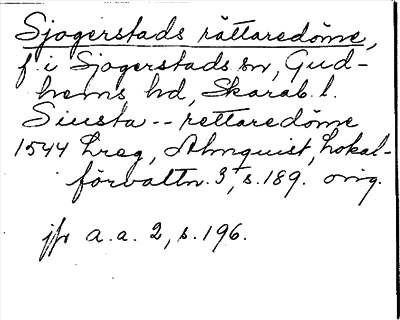 Sjogerstads rättaredöme,
f. i Sjogerstads sn, Gud-
hems hd, Skarab. l.
Siusta -- rettaredöme
1544 hreg, Almquist, Lokal-
förvaltn. 3, s. 189. orig.
jfr a.a. 2, s. 196.